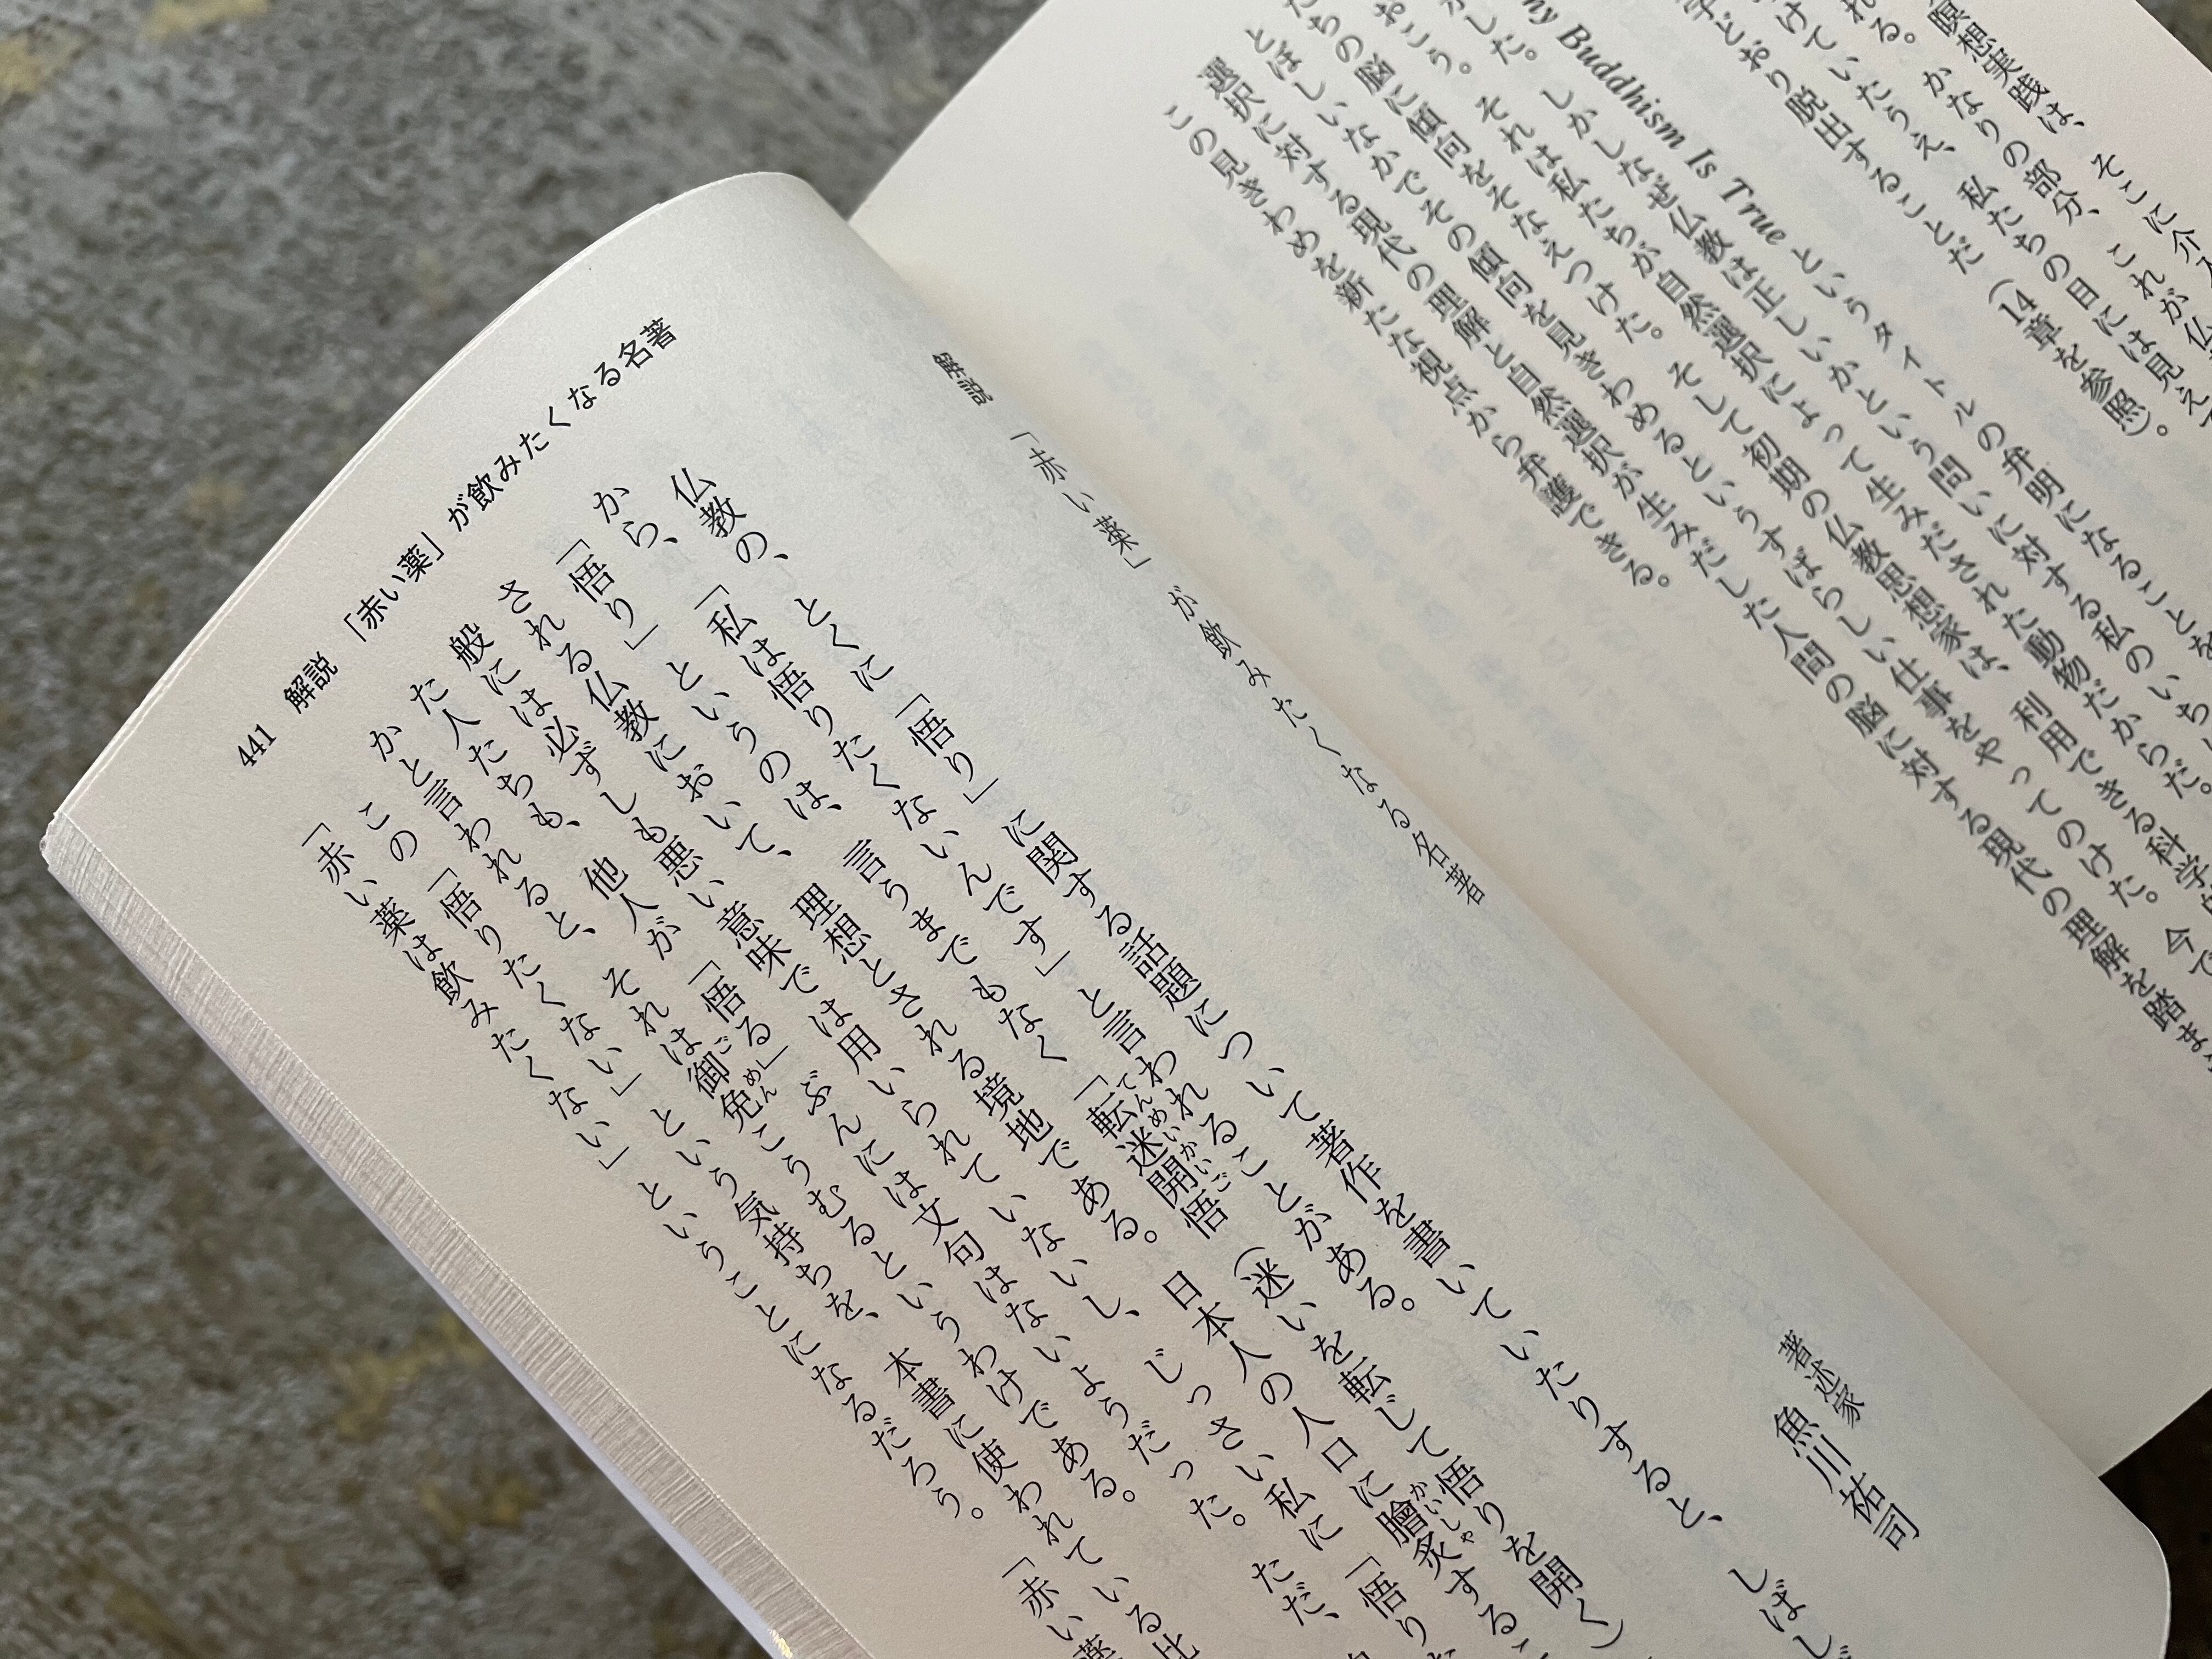 瞑想実践は、そこに介入
れる。かなりの部分、これが仏
けていたうえ、私たちの目には見えて
字どおり脱出することだ（14章を参照）。
ny Buddhism Is True というタイトルの弁明になることを
した。しかしなぜ仏教は正しいかという問いに対する私のいち
おこう。それは私たちが自然選択によって生みだされた動物だからだ。
たちの脳に傾向をそなえつけた。そして初期の仏教思想家は、利用できる科学的
とぼしいなかでその傾向を見きわめるというすばらしい仕事をやってのけた。今で
選択に対する現代の理解と自然選択が生みだした人間の脳に対する現代の理解を踏ま
この見きわめを新たな視点から弁護できる。
解説　「赤い薬」が飲みたくなる名著
著述家　魚川祐司
仏教の、とくに「悟り」に関する話題について著作を書いていたりすると、しばし
から、「私は悟りたくないんです」と言われることがある。
「悟り」というのは、言うまでもなく「転迷開悟（迷いを転じて悟りを開く）
される仏教において、理想とされる境地である。日本人の人口に膾炙するこ
般には必ずしも悪い意味では用いられていないし、じっさい私に「悟りた
た人たちも、他人が「悟る」ぶんには文句はないようだった。ただ、
かと言われると、それは御免こうむるというわけである。
この「悟りたくない」という気持ちを、本書に使われている比
「赤い薬は飲みたくない」ということになるだろう。「赤い薬
441　解説　「赤い薬」が飲みたくなる名著